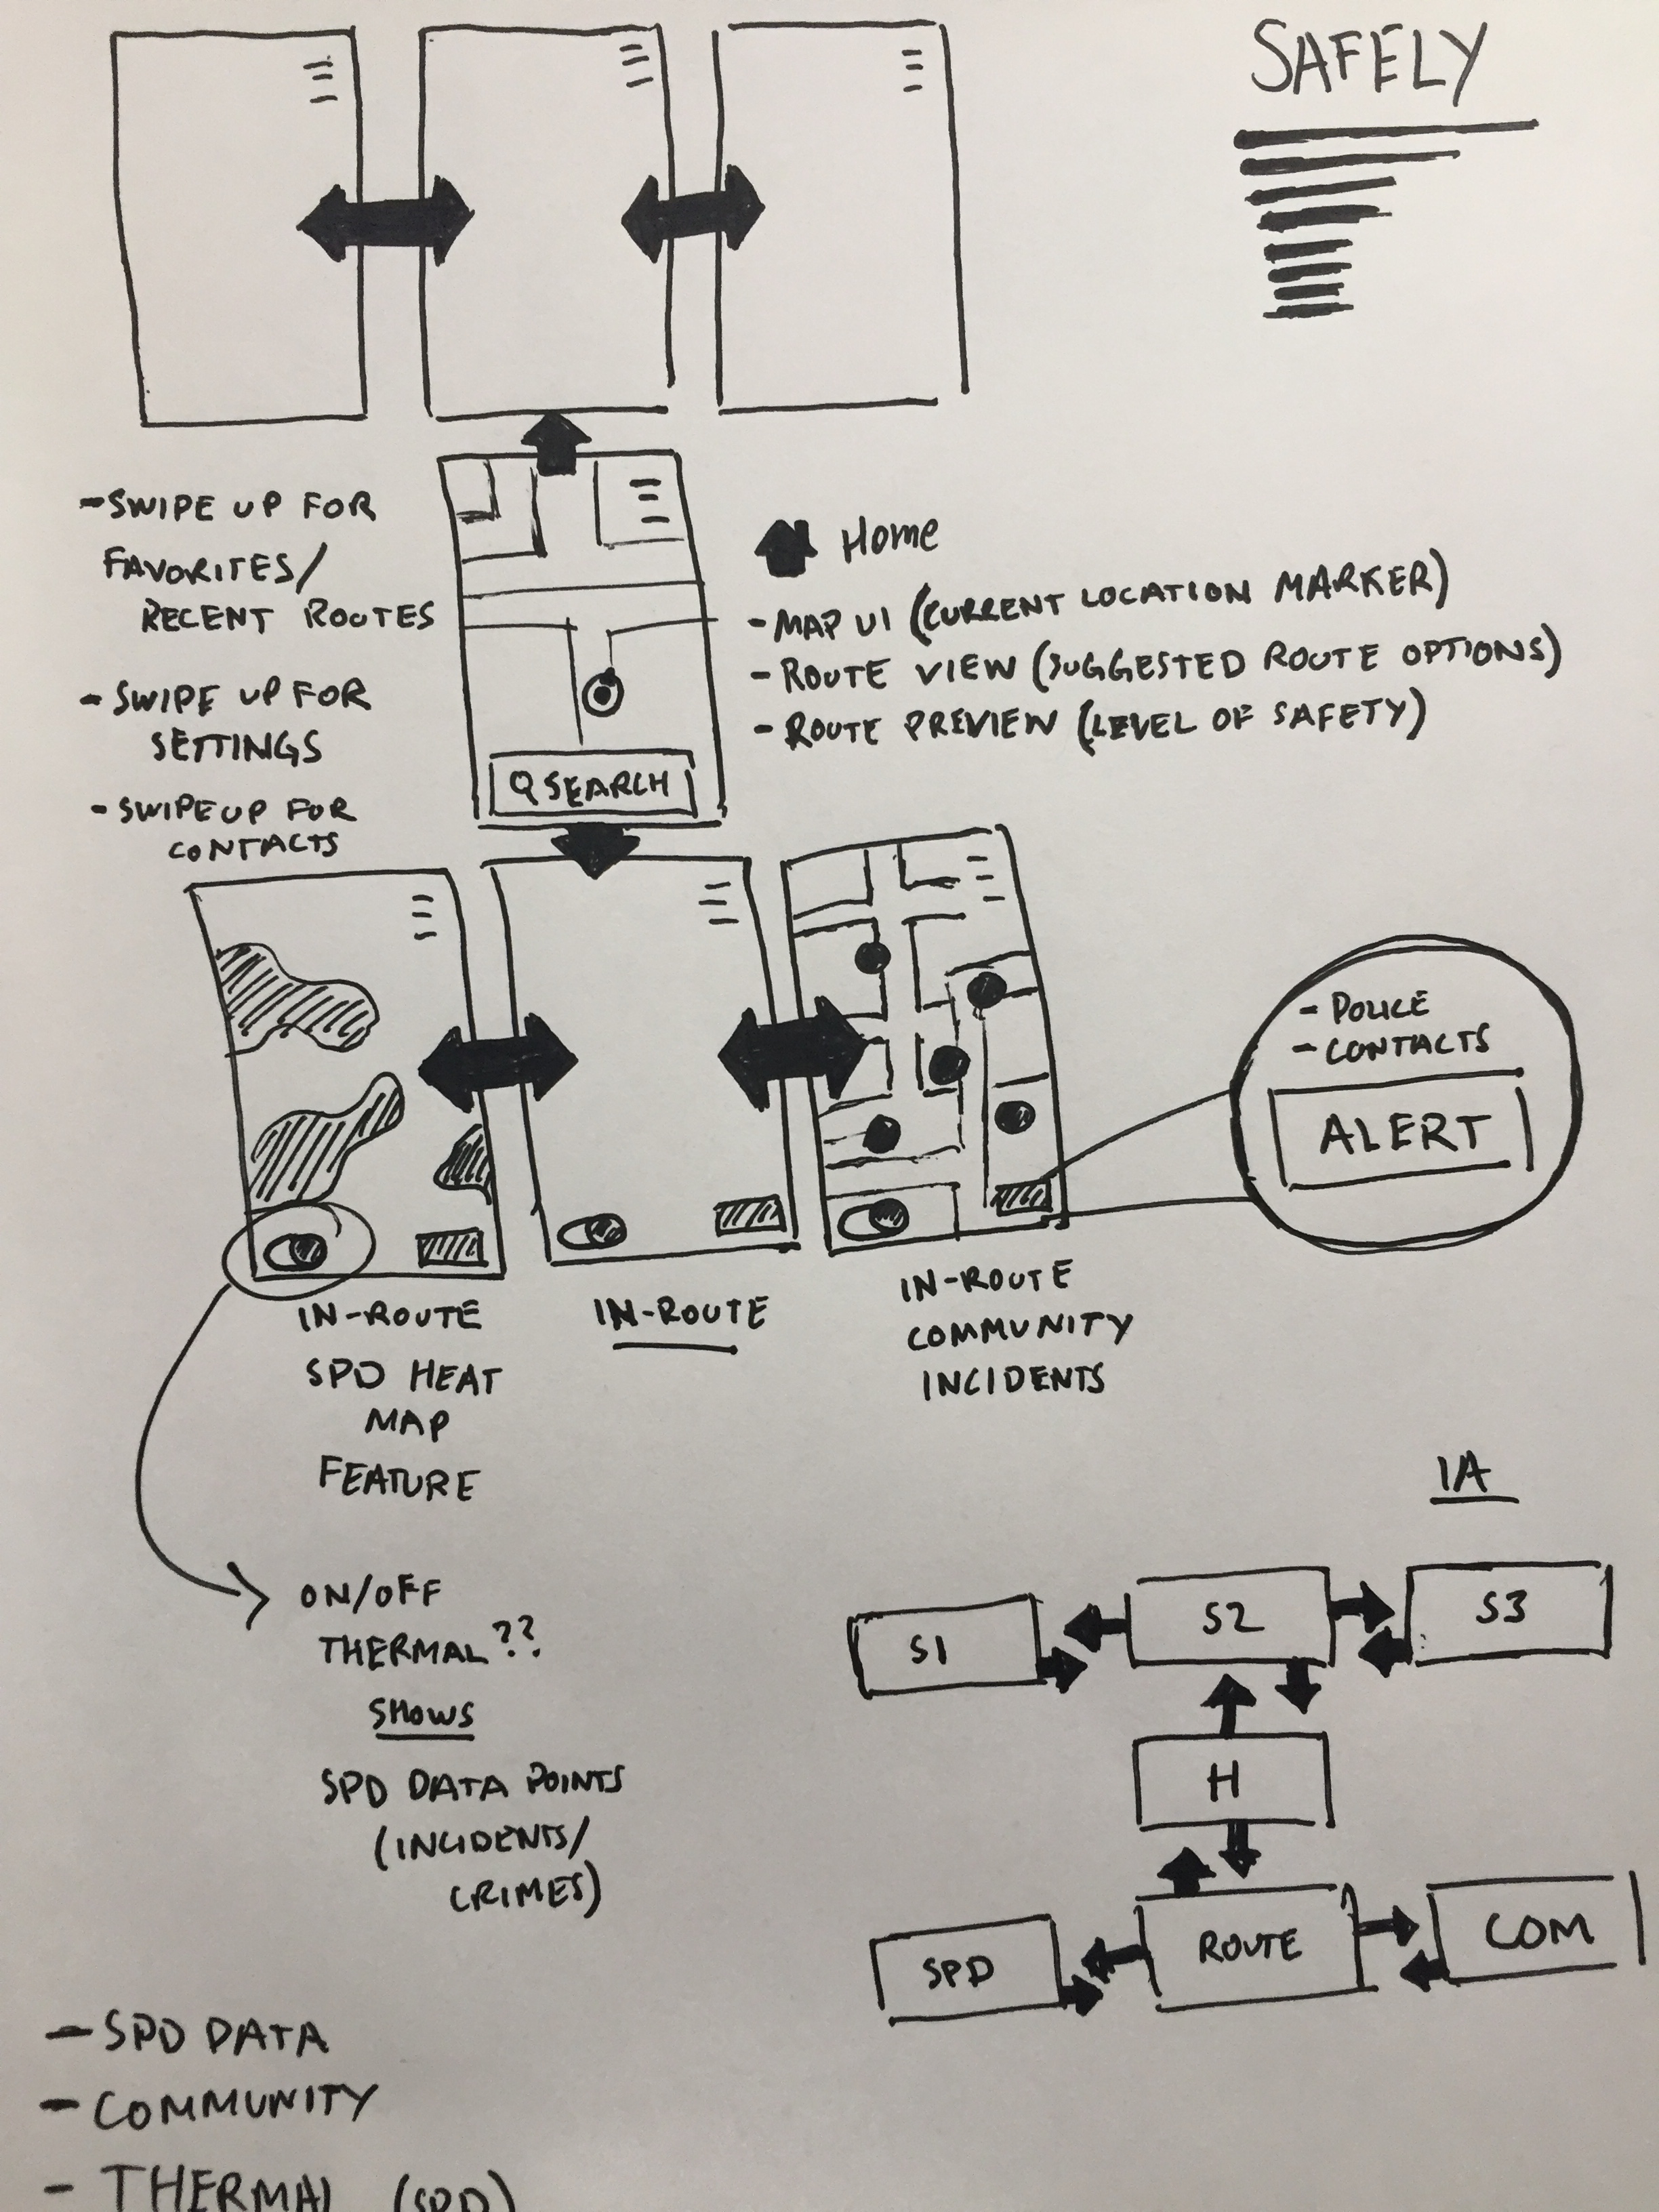 SAFELY
-SWIPE UP FOR
FAVORITES/
RECENT ROUTES
- SWIPE UP FOR
SETTINGS
- SWIPE UP FOR
CONTACTS
Home
- MAP UI (CURRENT LOCATION MARKER)
- ROUTE VIEW (SUGGESTED ROUTE OPTIONS)
- ROUTE PREVIEW (LEVEL OF SAFETY)
SEARCH
- POLICE
- CONTACTS
ALERT
IN-ROUTE
SPD HEAT
MAP
FEATURE
IN-ROUTE
IN-ROUTE
COMMUNITY
INCIDENTS
ON/OFF
THERMAL??
SHOWS
SPD DATA POINTS
(INCIDENTS/
CRIMES)
IA
S1
S2
S3
H
SPD
ROUTE
COM
- SPD DATA
- COMMUNITY
- THERMAL (SPD)